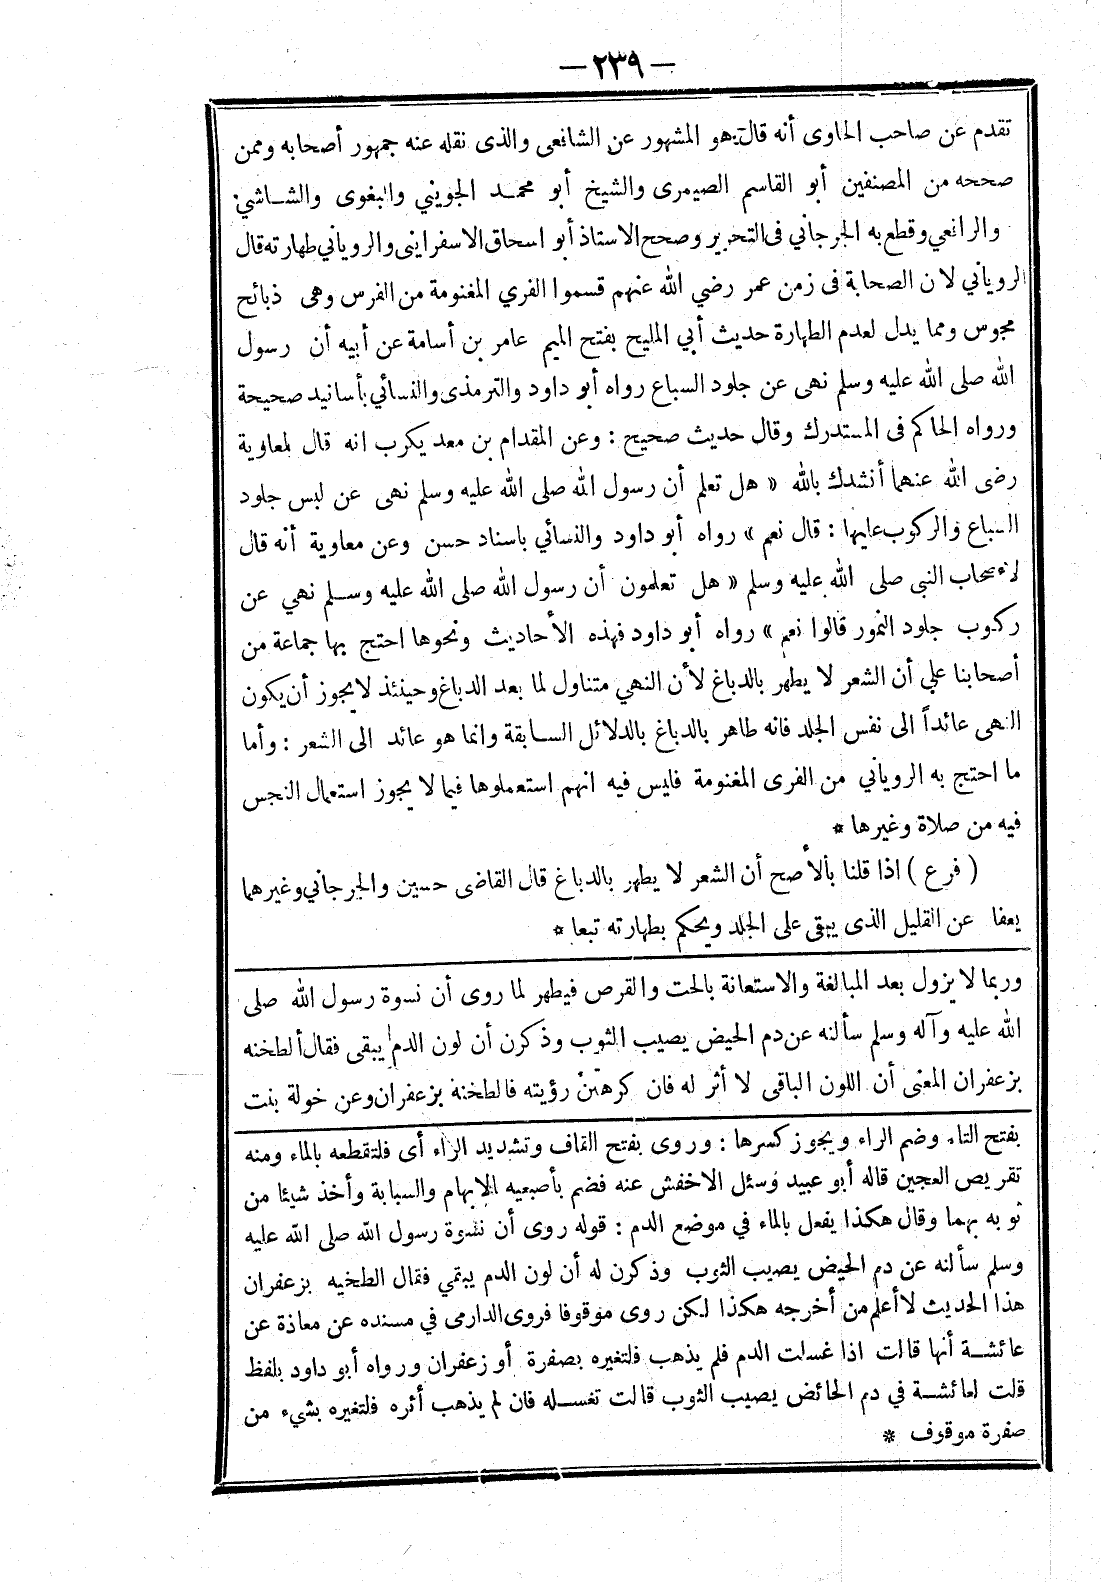 — ٢٣٩ —
تقدم عن صاحب الحاوى أنه قال هو المشهور عن الشافعى والذى نقله عنه جمهور أصحابه وممن
صححه من المصنفين أبو القاسم الصيمرى والشيخ أبو محمد الجويني والبغوى والشاشي
والرافعي وقطع به الجرجاني فى التحرير وصحح الاستاذ أبو اسحاق الاسفراينى والروياني طهارته قال
الروياني لان الصحابة فى زمن عمر رضي الله عنهم قسموا الفري المغنومة من الفرس وهى ذبائح
مجوس ومما يدل لعدم الطهارة حديث أبي المليح بفتح الميم عامر بن أسامة عن أبيه أن رسول
الله صلى الله عليه وسلم نهى عن جلود السباع رواه أبو داود والترمذى والنسائي بأسانيد صحيحة
ورواه الحاكم فى المستدرك وقال حديث صحيح : وعن المقدام بن معد يكرب انه قال لمعاوية
رضى الله عنهما أنشدك بالله « هل تعلم أن رسول الله صلى الله عليه وسلم نهى عن لبس جلود
السباع والركوب عليها : قال نعم » رواه أبو داود والنسائي باسناد حسن وعن معاوية أنه قال
لاصحاب النبى صلى الله عليه وسلم « هل تعلمون أن رسول الله صلى الله عليه وسلم نهي عن
ركوب جلود النمور قالوا نعم » رواه أبو داود فهذه الأحاديث ونحوها احتج بها جماعة من
أصحابنا علي أن الشعر لا يطهر بالدباغ لأن النهي متناول لما بعد الدباغ وحينئذ لا يجوز أن يكون
النهى عائداً الى نفس الجلد فانه طاهر بالدباغ بالدلائل السابقة وانما هو عائد الى الشعر : وأما
ما احتج به الروياني من الفرى المغنومة فليس فيه انهم استعملوها فيما لا يجوز استعمال النجس
فيه من صلاة وغيرها *
( فرع ) اذا قلنا بالأصح أن الشعر لا يطهر بالدباغ قال القاضى حسين والجرجاني وغيرهما
يعفا عن القليل الذى يبقى على الجلد ويحكم بطهارته تبعا *
وربما لا يزول بعد المبالغة والاستعانة بالحت والقرص فيطهر لما روى أن نسوة رسول الله صلى
الله عليه وآله وسلم سألنه عن دم الحيض يصيب الثوب وذكرن أن لون الدم يبقى فقال ألطخنه
بزعفران المعنى أن اللون الباقى لا أثر له فان كرهتن رؤيته فالطخنة بزعفران وعن خولة بنت
بفتح التاء وضم الراء ويجوز كسرها : وروى بفتح القاف وتشديد الراء أى فلتقطعه بالماء ومنه
تقريص العجين قاله أبو عبيد وسئل الاخفش عنه فضم بأصبعيه الابهام والسبابة وأخذ شيئا من
ثوبه بهما وقال هكذا يفعل بالماء في موضع الدم : قوله روى أن نسوة رسول الله صلى الله عليه
وسلم سألنه عن دم الحيض يصيب الثوب وذكرن له أن لون الدم يبقي فقال الطخيه بزعفران
هذا الحديث لا أعلم من أخرجه هكذا لكن روى موقوفا فروى الدارمى في مسنده عن معاذة عن
عائشة أنها قالت اذا غسلت الدم فلم يذهب فلتغيره بصفرة أو زعفران ورواه أبو داود بلفظ
قلت لعائشة في دم الحائض يصيب الثوب قالت تغسله فان لم يذهب أثره فلتغيره بشيء من
صفرة موقوف *